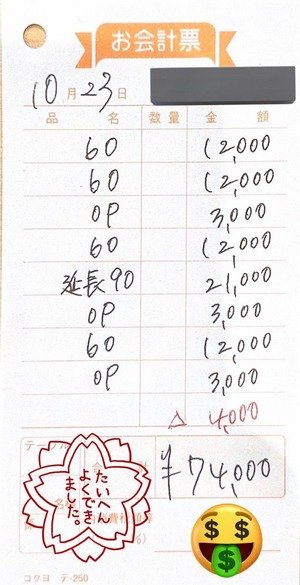 お会計票
10月23日
品名 数量 金額
60 12,000
60 12,000
OP 3,000
60 12,000
延長90 21,000
OP 3,000
60 12,000
OP 3,000
△ 4,000
テーブル
¥74,000
たいへん
よくでき
ました。
コクヨ テ-250